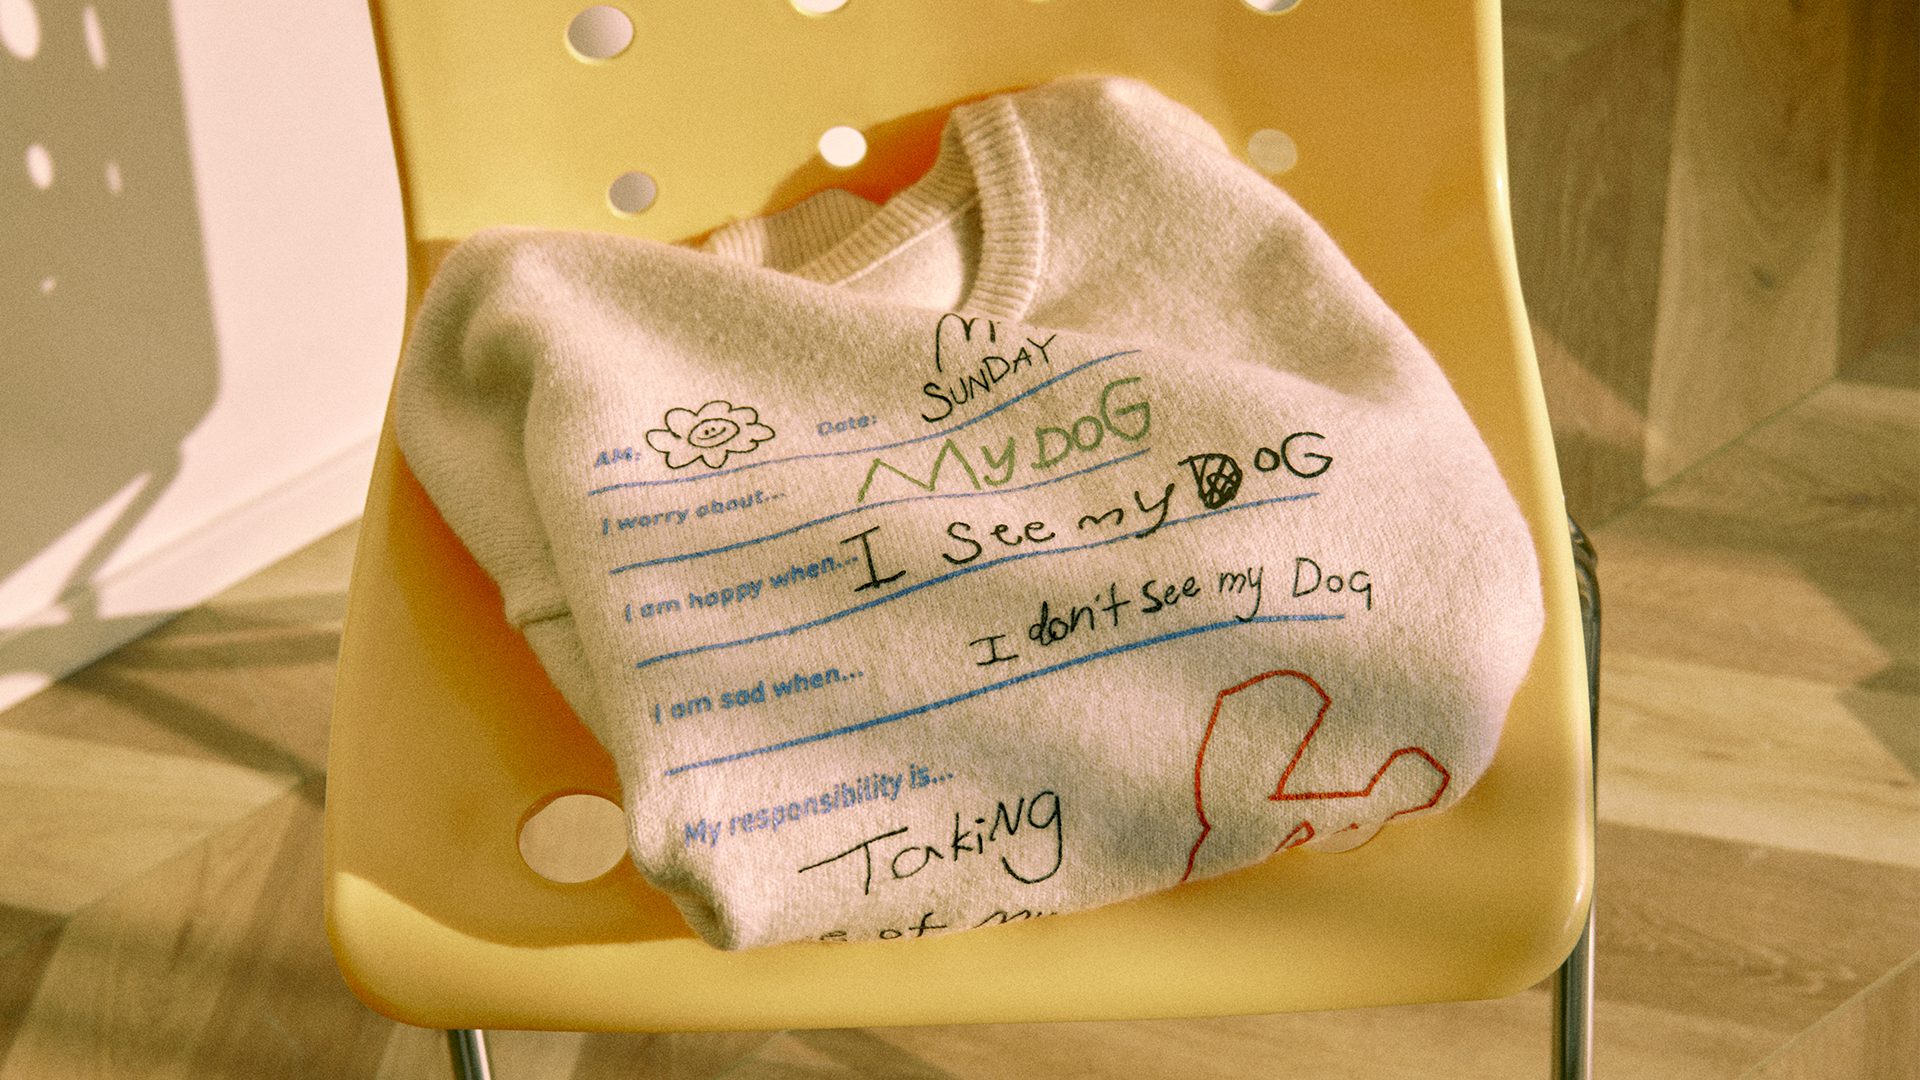 AM: Date: SUNDAY
I worry about... My DOG
I am happy when... I See my DOG
I am sad when... I don't see my Dog
My responsibility is...
Taking
of